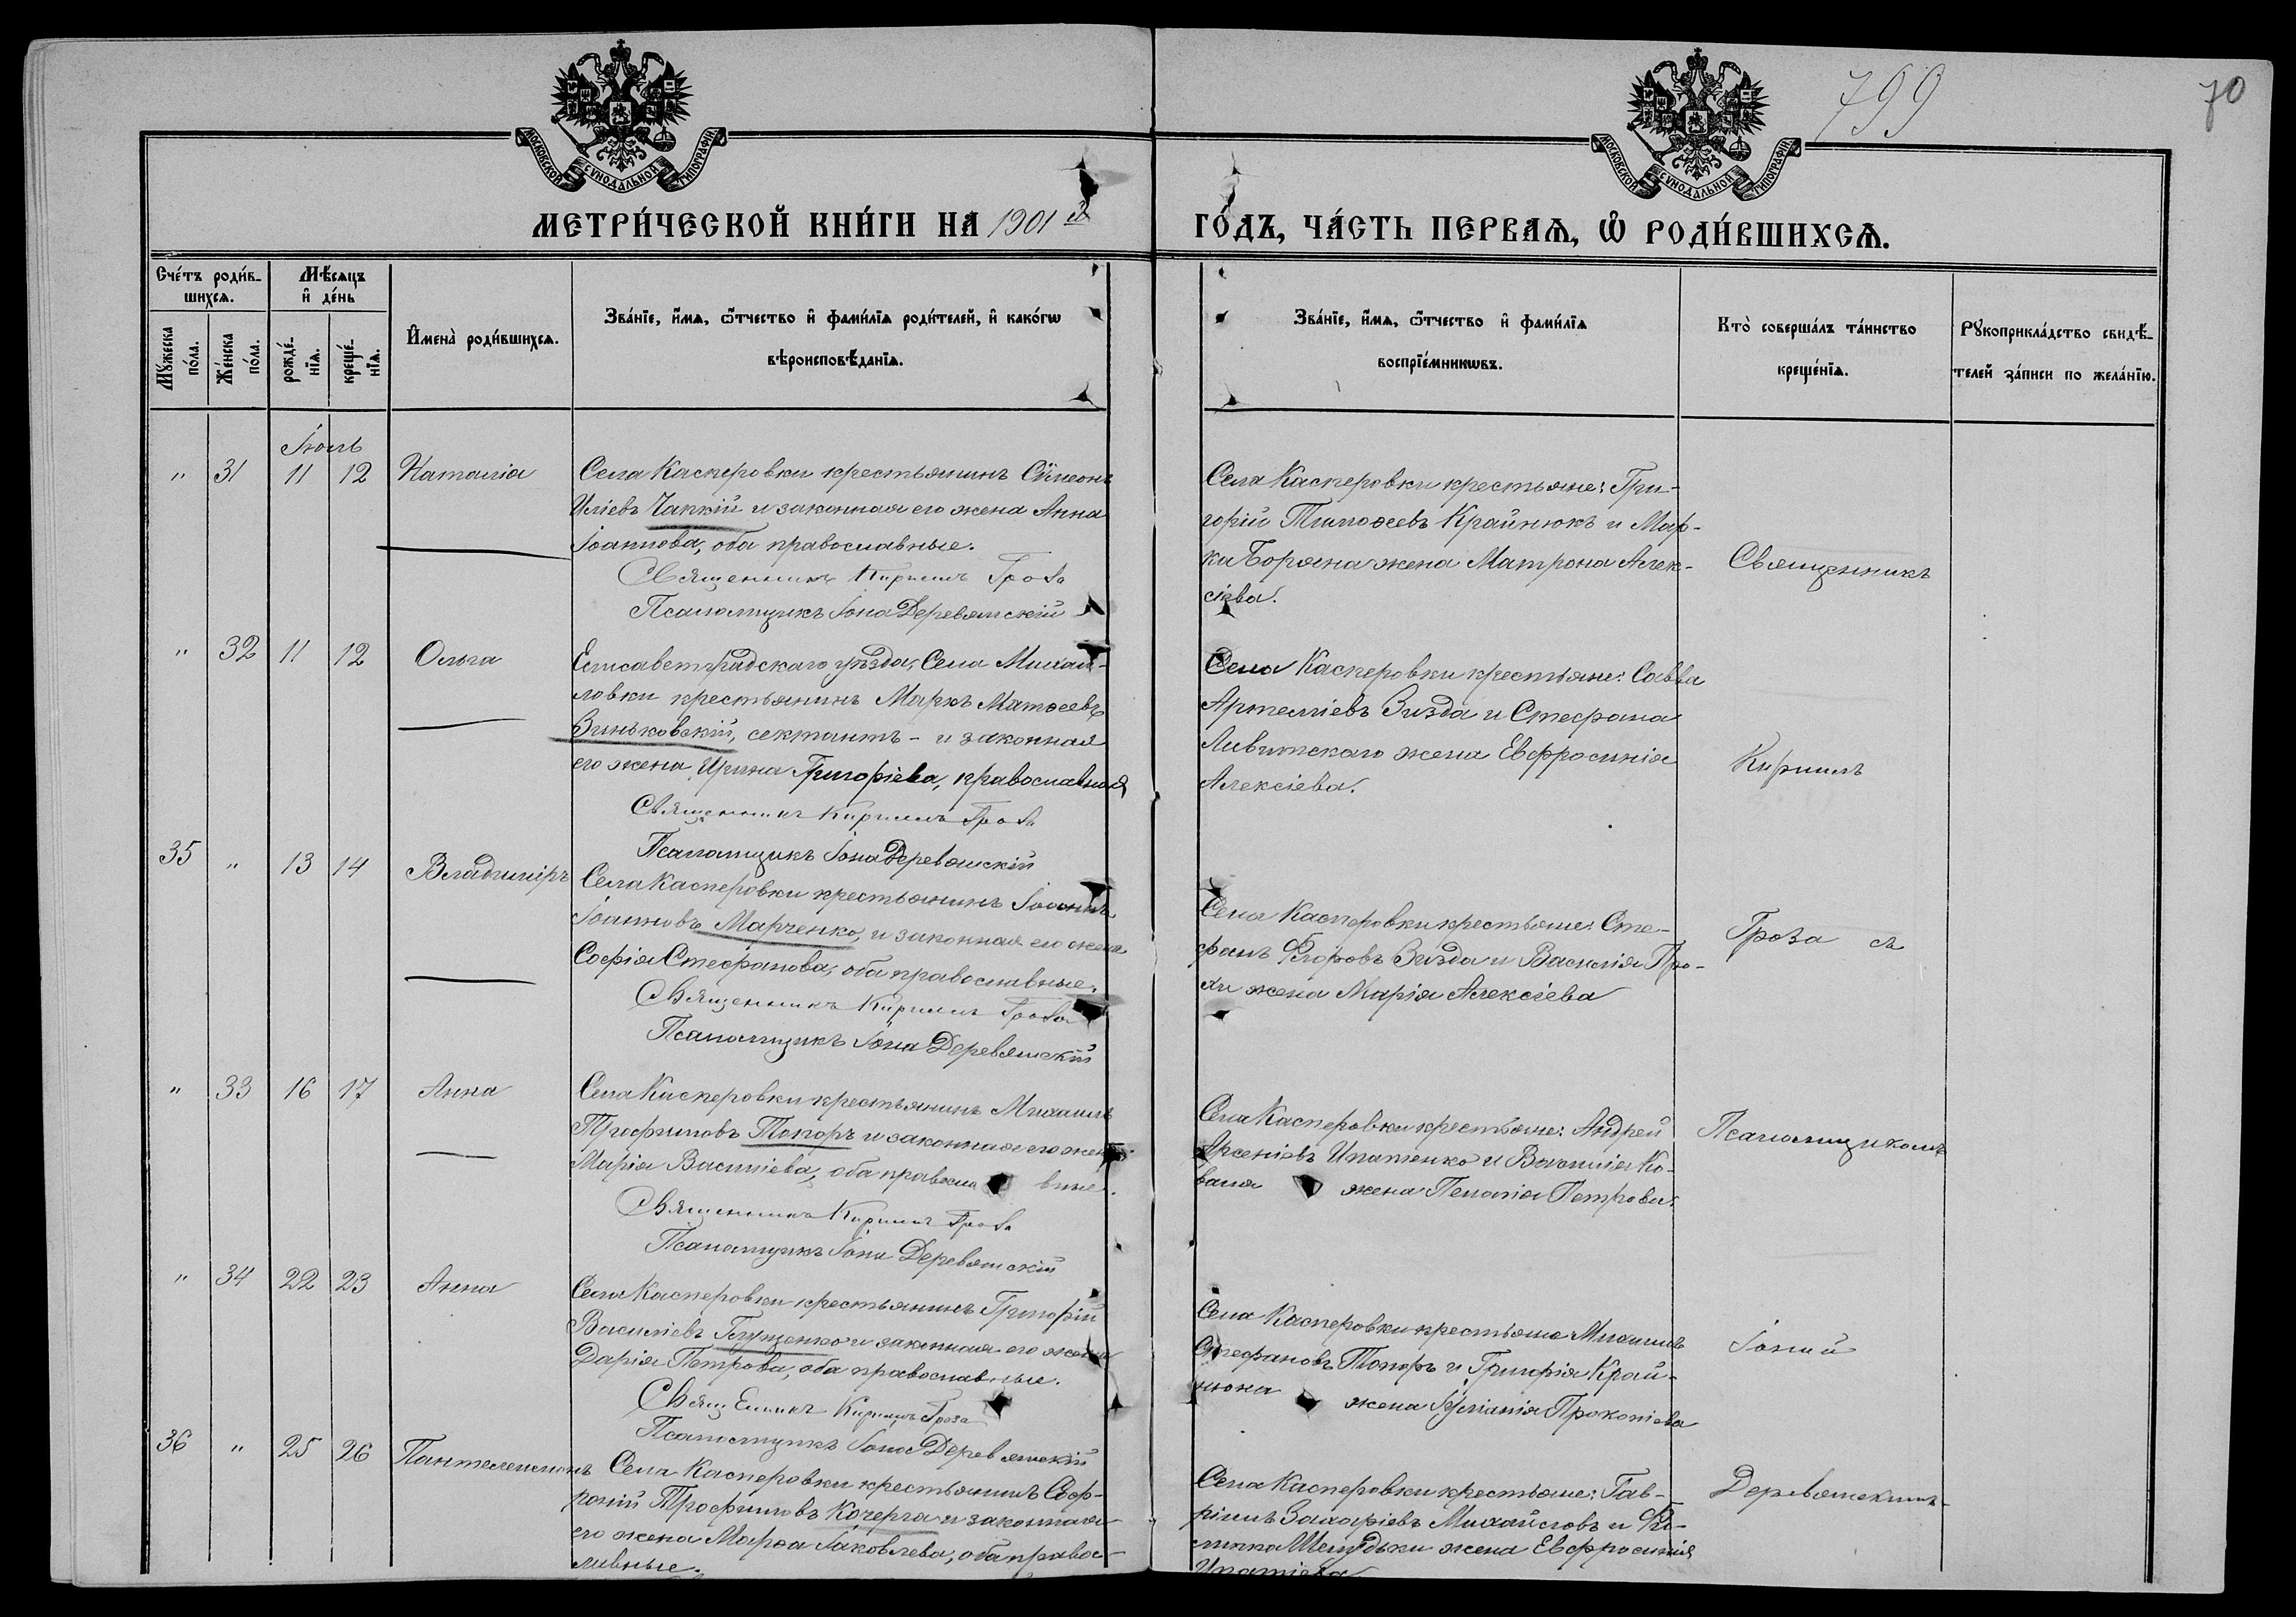 799
70
МОСКОВСКОЙ СѴНОДАЛЬНОЙ ТИПОГРАФІИ
МОСКОВСКОЙ СѴНОДАЛЬНОЙ ТИПОГРАФІИ
МЕТРИ́ЧЕСКОЙ КНИ́ГИ НА 1901 й
ГО́ДЪ, ЧА́СТЬ ПЕРВАѦ, Ѡ҆ РОДИ́ВШИХСѦ.
Сче́тъ роди́в-
шихсѧ.
Мѣ́сѧцъ
и҆ де́нь
Мꙋ́жеска
по́ла.
Же́нска
по́ла.
рожде́-
нїѧ.
креще́-
нїѧ.
И҆мена̀ роди́вшихсѧ.
Зва́нїе, и҆́мѧ, ѻ҆́тчество и҆ фами́лїѧ роди́телей, и҆ како́гѡ
вѣроисповѣ́данїѧ.
Зва́нїе, и҆́мѧ, ѻ҆́тчество и҆ фами́лїѧ
воспрїе́мникѡвъ.
Кто̀ соверша́лъ та́инство
креще́нїѧ.
Рꙋкоприкла́дство свидѣ́-
телей за́писи по жела́нїю.
Іюль
" 31 11 12 Наталія
Села Касперовки крестьянинъ Сѵмеонъ
Иліевъ Чапкій и законная его жена Анна
Іоаннова, оба православные.
Священникъ Кириллъ Гроза
Псаломщикъ Іона Деревянскій
Села Касперовки крестьяне: Гри-
горій Тимоѳеевъ Крайнюкъ и Мар-
ка Боряна жена Матрона Алек-
сіева.
Священникъ
" 32 11 12 Ольга
Елисаветградскаго уѣзда, Села Михай-
ловки крестьянинъ Маркъ Матѳеевъ
Зиньковскій, сектантъ - и законная
его жена Ирина Григоріева, православная
Священникъ Кириллъ Гроза
Псаломщикъ Іона Деревянскій
Села Касперовки крестьяне: Савва
Артеміевъ Зизда и Стефана
Ливитскаго жена Евфросинія
Алексіева.
Кириллъ
35 " 13 14 Владиміръ
Села Касперовки крестьянинъ Іоаннъ
Іоанновъ Марченко, и законная его жена
Софія Стефанова, оба православные.
Священникъ Кириллъ Гроза
Псаломщикъ Іона Деревянскій
Села Касперовки крестьяне: Сте-
фанъ Ѳедоровъ Зизда и Василія Про-
ки жена Марія Алексіева
Гроза съ
" 33 16 17 Анна
Села Касперовки крестьянинъ Михаилъ
Трофимовъ Топоръ и законная его жена
Марія Василіева, оба правосла вные.
Священникъ Кириллъ Гроза
Псаломщикъ Іона Деревянскій
Села Касперовки крестьяне: Андрей
Арсеніевъ Ипатенко и Василія Ко-
валя жена Пелагія Петрова.
Псаломщикомъ
" 34 22 23 Анна
Села Касперовки крестьянинъ Григорій
Василіевъ Глущенко и законная его жена
Дарія Петрова, оба православные.
Священникъ Кириллъ Гроза
Псаломщикъ Іона Деревянскій
Села Касперовки крестьяне Михаилъ
Стефановъ Топоръ и Григорія Край-
нюка жена Іуліанія Прокопіева
Іоной
36 " 25 26 Пантелеимонъ
Села Касперовки крестьянинъ Соф-
роній Трофимовъ Кочерга и законная
его жена Марѳа Іаковлева, оба право-
славные.
Села Касперовки крестьяне: Гав-
ріилъ Захаріевъ Михайловъ и
жена Евфросинія
Ипатіева.
Деревянскимъ